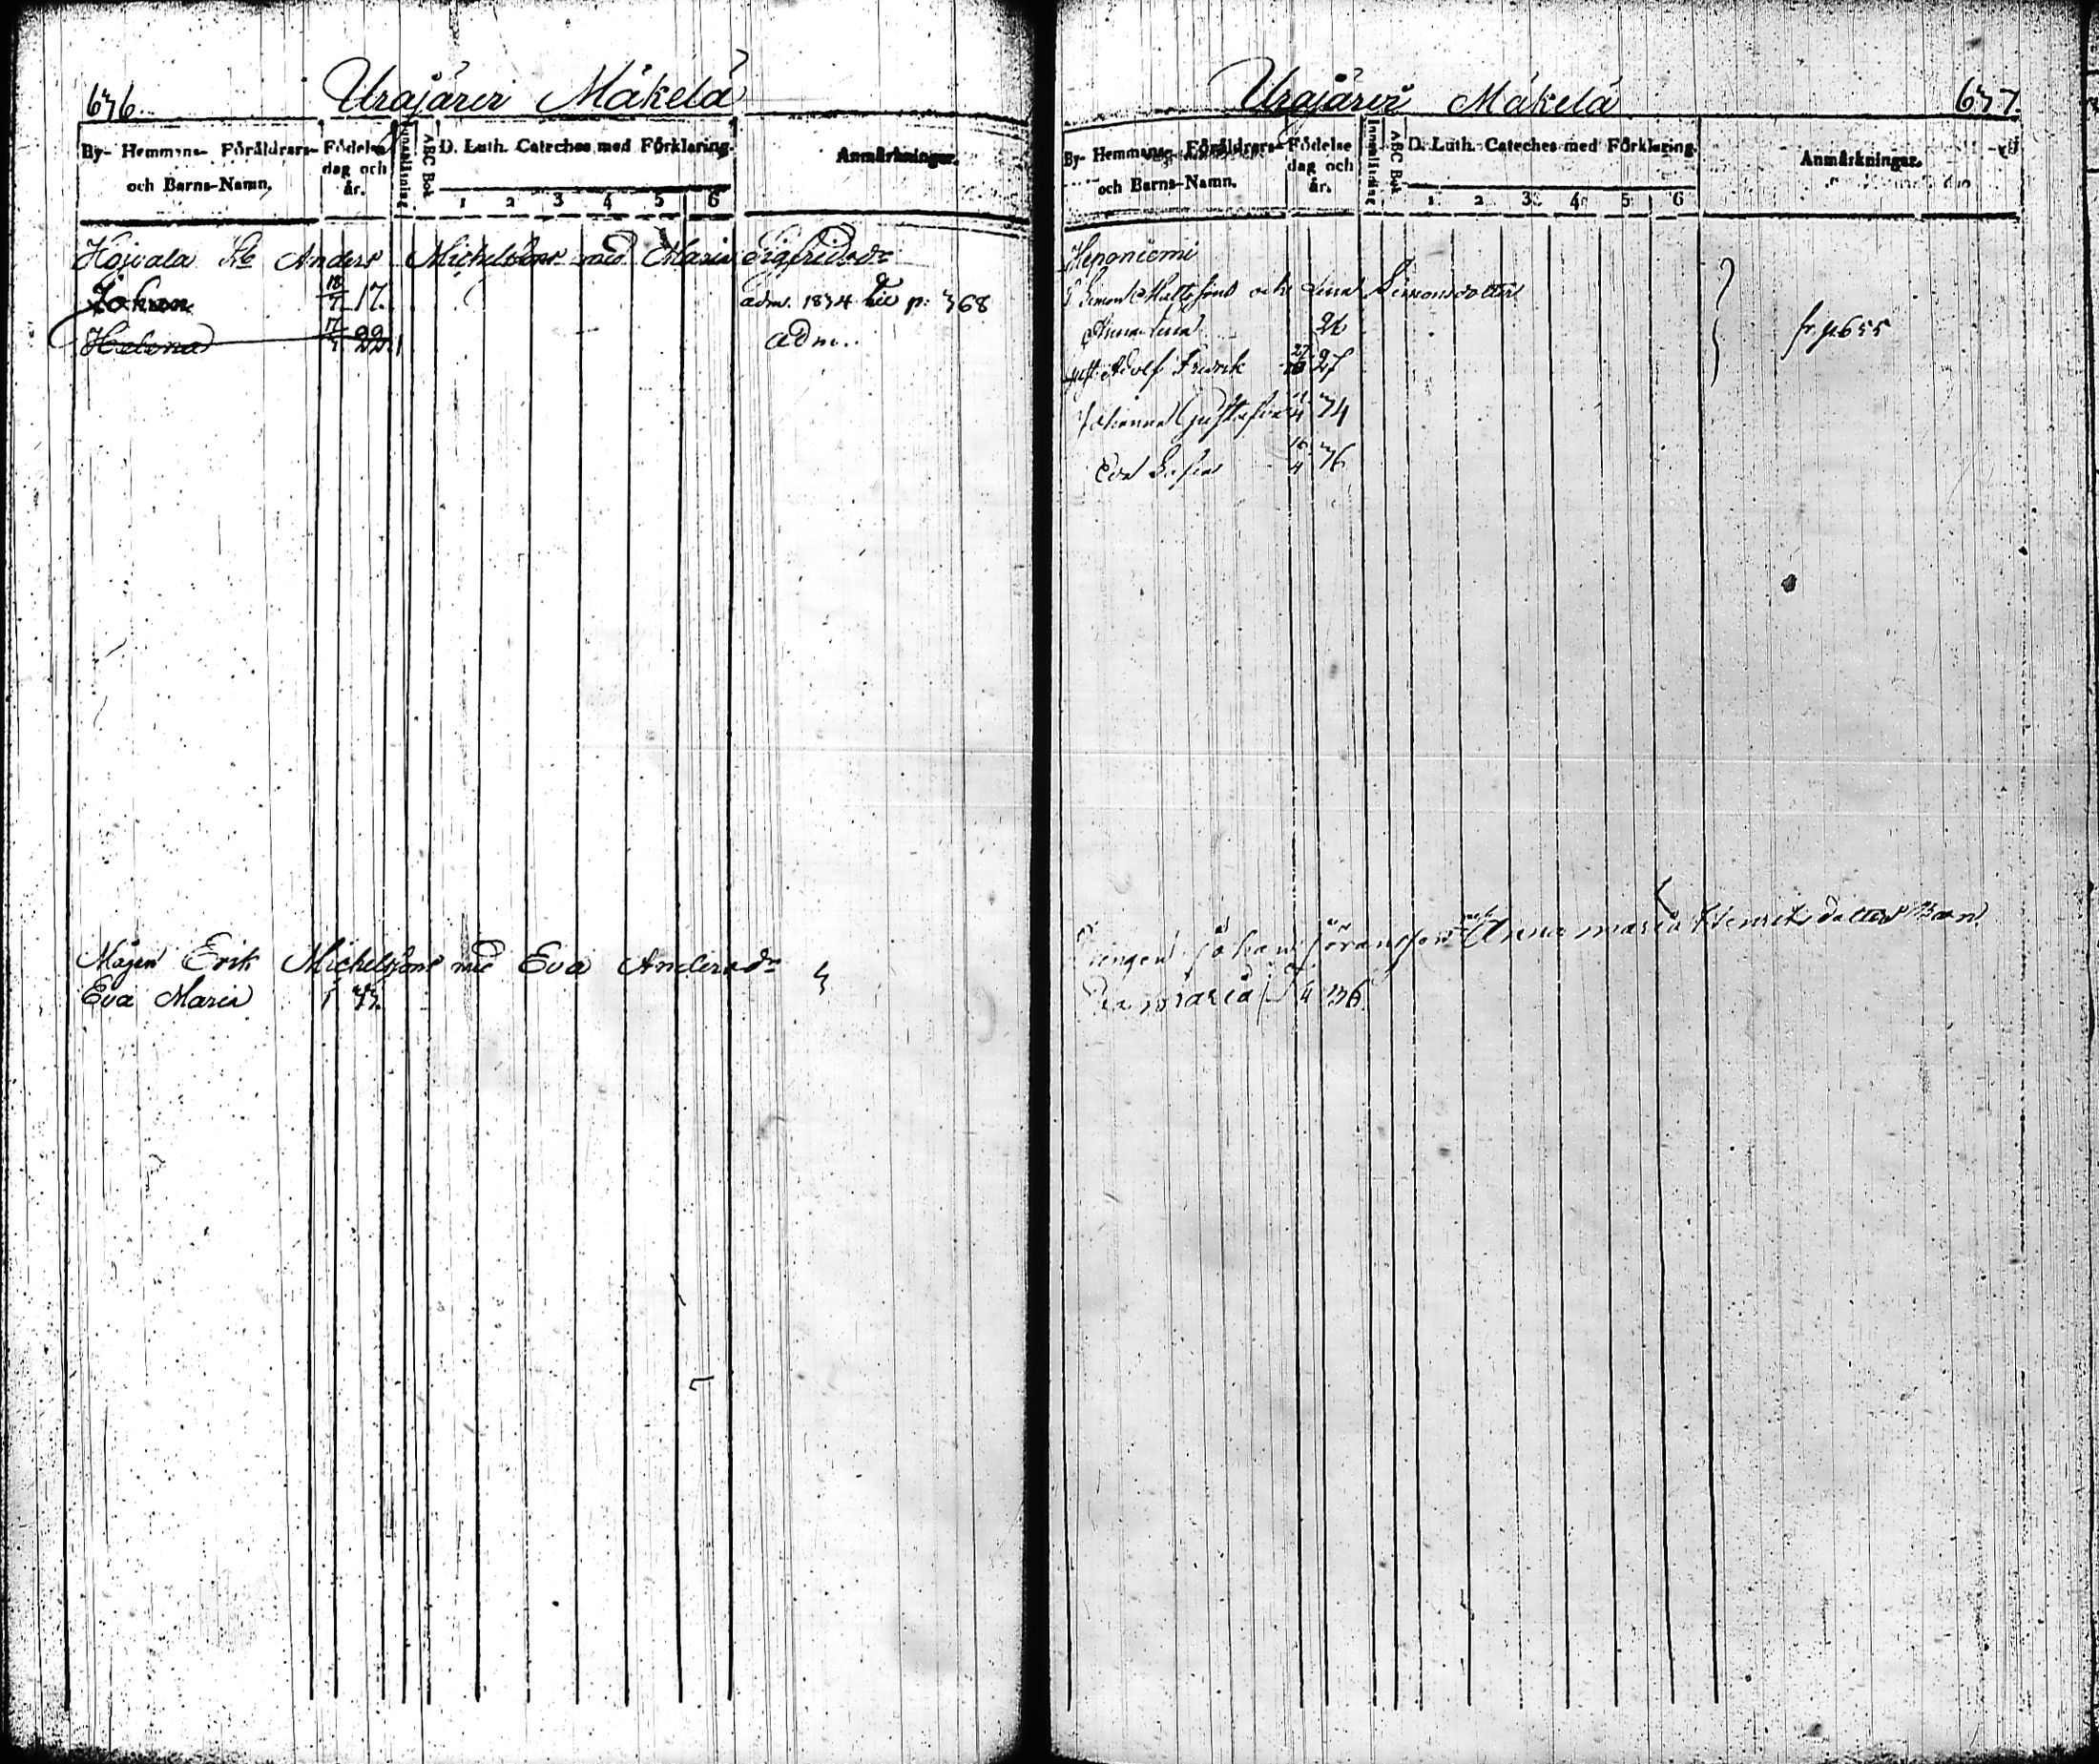 636.
Urajärvi Mäkelä
By- Hemmans- Föräldrars- och Barns-Namn.
Födelse dag och år.
Innanläsning
ABC Bok
D. Luth. Cateches med Förklaring.
1 2 3 4 5 6
Anmärkningar.
Anders Michelsson med Maria Sigfridsdr
Johan 18/7 17. adm. 1834 p: 368
Helena 17/7 22. adm.
Mågen Erik Michelsson med Eva Andersdr
Eva Maria
Urajärvi Mäkelä
637.
By- Hemmans- Föräldrars- och Barns-Namn.
Födelse dag och år.
Innanläsning
ABC Bok
D. Luth. Cateches med Förklaring.
1 2 3 4 5 6
Anmärkningar.
Heponiemi
Simon Mattsson och Lena Simonsdotter
Anna Lena 26
Adolf Fredrik 27 fr. p 655
Johanna Gustafva 34
Eva Sofia 16/4 36
Drengen Johan Göransson Anna Maria Henriksdotter Barn
Eva Maria 36